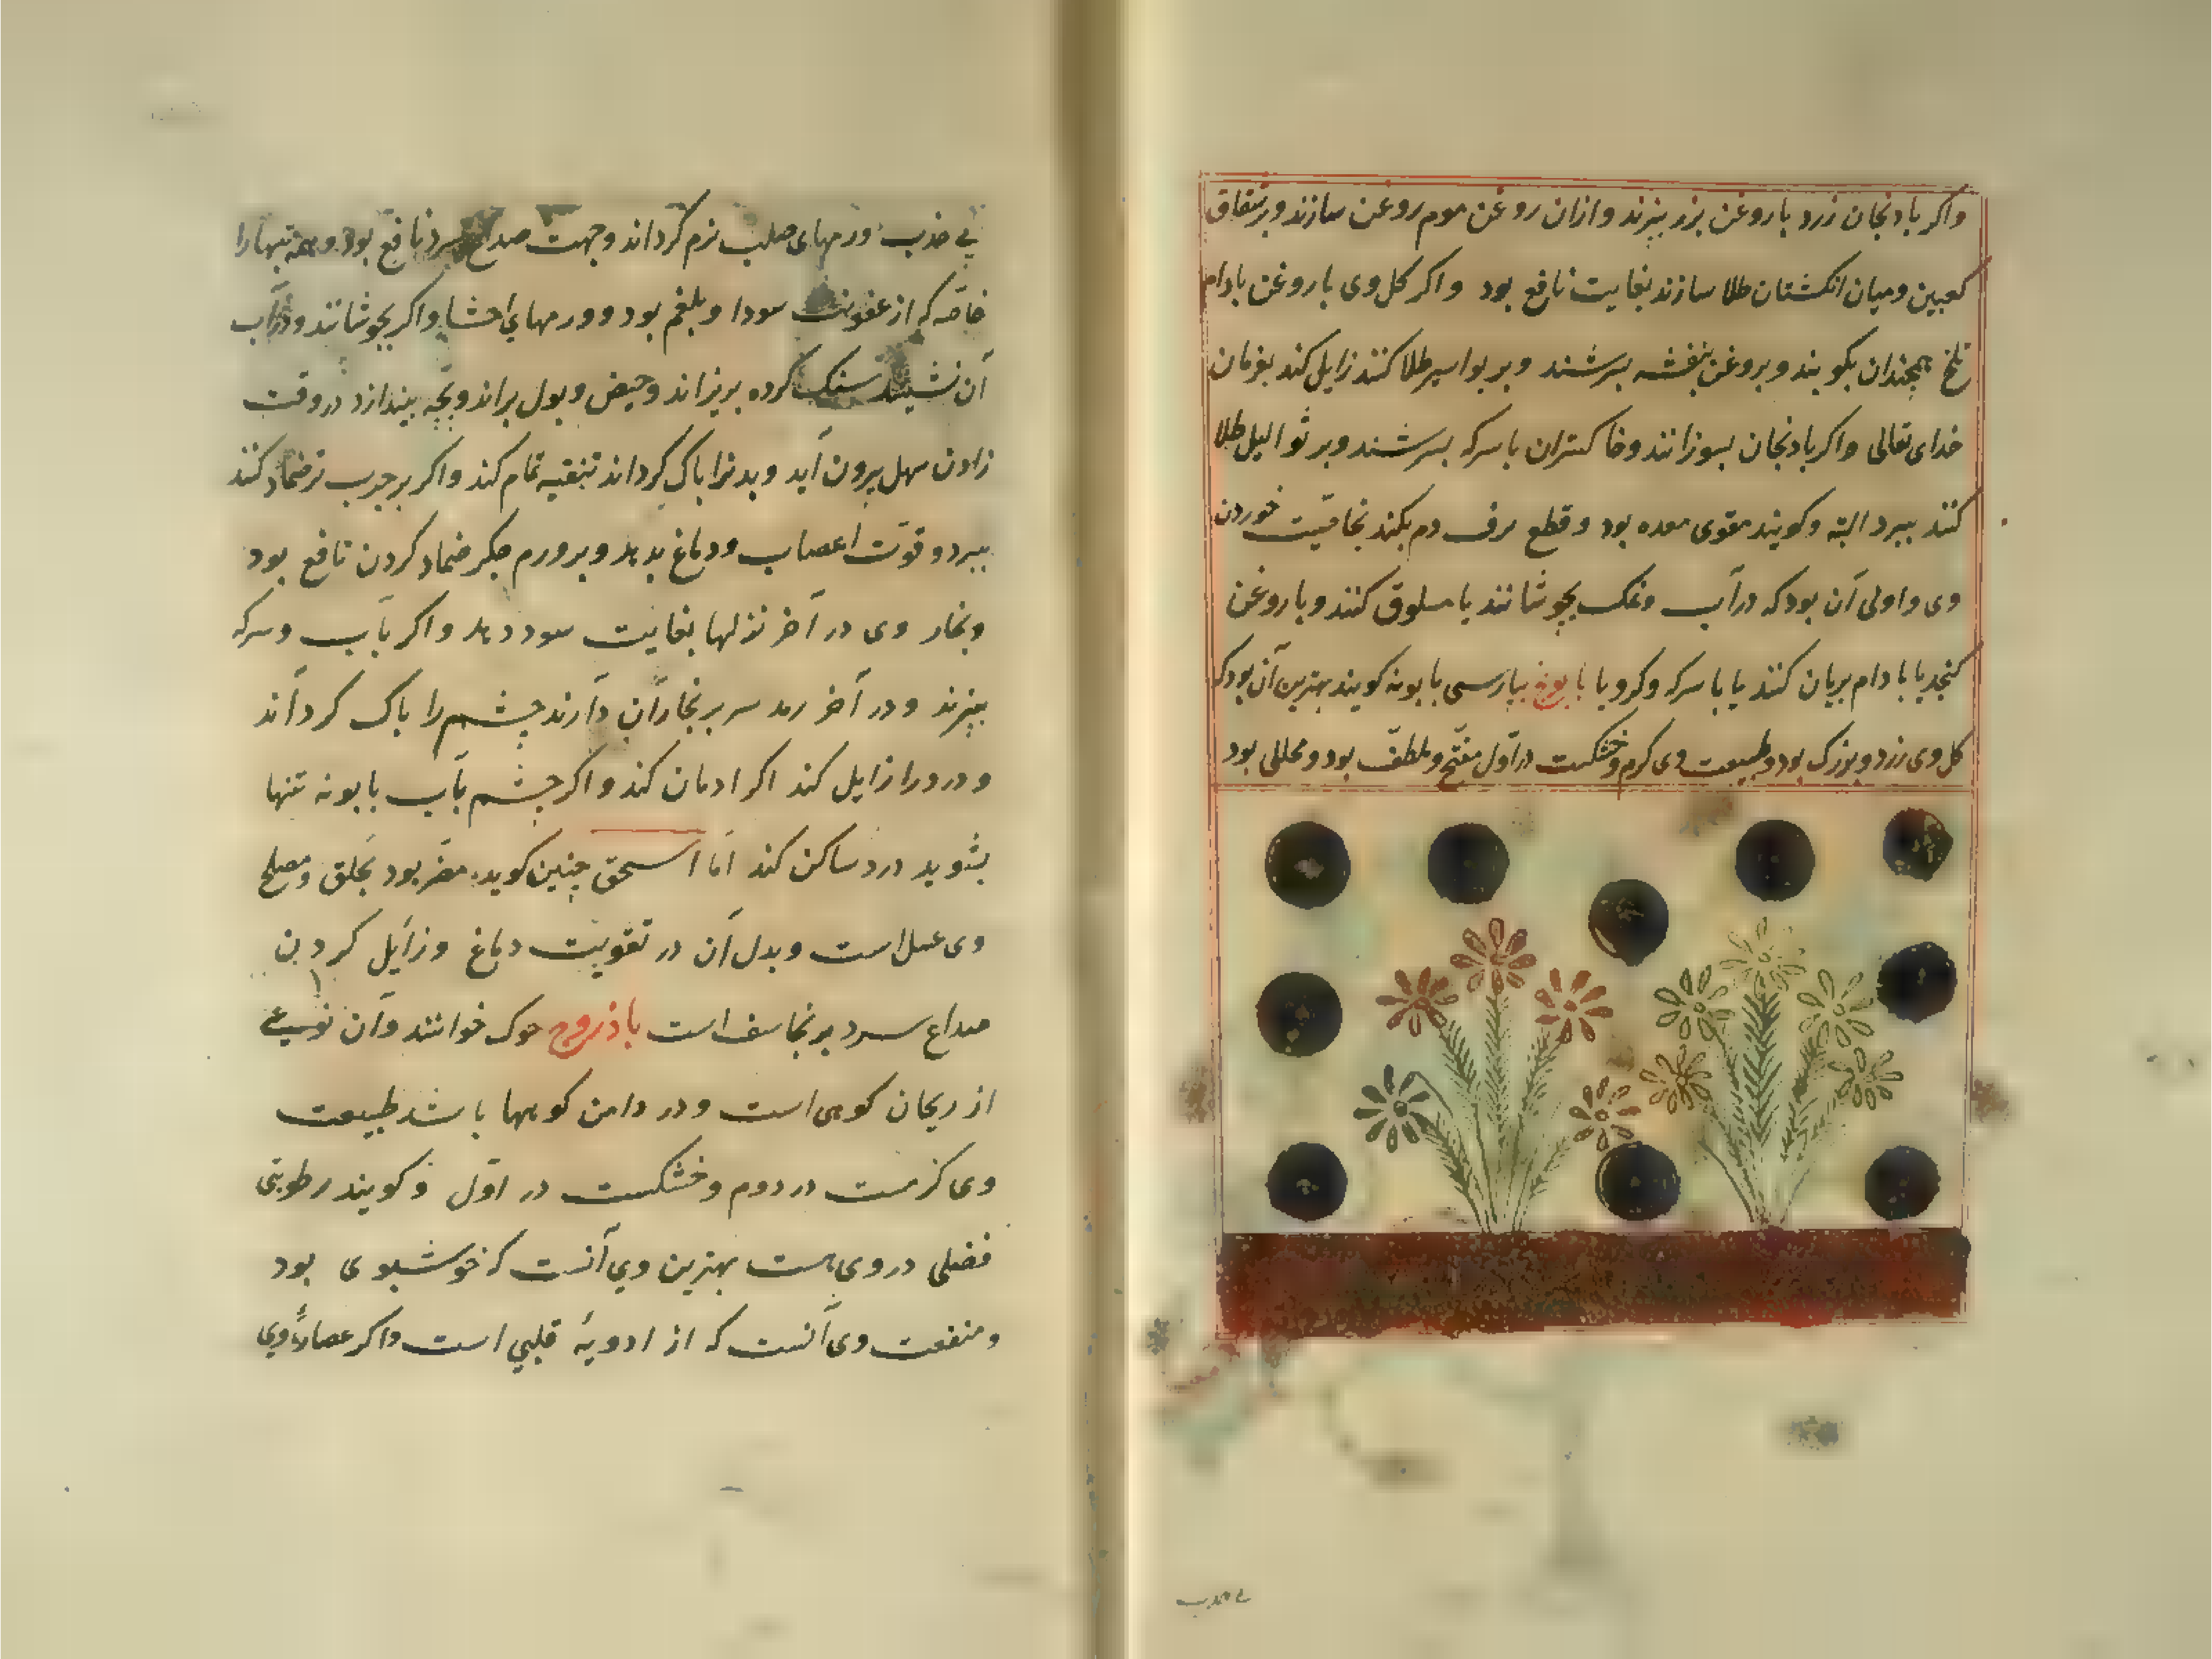 واکر بادنجان زرد با روغن بزر بپزند و ازان روغن موم روغن سازند و بر شقاق
کعبین و میان انکشتان طلا سازند بغایت نافع بود واکر کل وی با روغن بادام
تلخ همچندان بکوبند و بروغن بنفشه بسرشند و بر بواسیر طلا کنند زایل کند بفرمان
خدای تعالی واکر بادنجان بسوزانند و خاکستر ان با سرکه بسرشند و بر ثوالیل طلا
کنند ببرد البته و کویند مقوی معده بود و قطع نزف دم بکند بخاصیّت خوردن
وی و اولی آن بود که در آب و نمک بجوشانند یا مسلوق کنند و با روغن
کنجد یا بادام بریان کنند یا با سرکه و کرویا بابونج بپارسی بابونه کویند بهترین آن بود که
کل وی زرد و بزرک بود و طبیعت وی کرم و خشکست در اوّل مفتّح و ملطّف بود و محللی بود
بی جذب
بی جذب ورمهای صلب نرم کرداند و جهت صداع سرد نافع بود و همه تبها را
خاصّه که از عفونت سودا و بلغم بود و ورمهاي احشا و اکر بجوشانند و در آب
آن نشینند سنک کرده بریزاند و حیض و بول براند و بچّه بیندازد در وقت
زادن سهل بیرون آید و بدنرا باک کرداند تنقیه تمام کند واکر بر جرب تر ضماد کنند
ببرد و قوّت اعصاب و دماغ بدهد و بر ورم جکر ضماد کردن نافع بود
و بخار وی در آخر نزلها بغایت سود دهد واکر بآب و سرکه
بپزند و در آخر رمد سر بر بخار آن دارند چشم را باک کرداند
و درد را زایل کند اکر ادمان کند واکر چشم بآب بابونه تنها
بشوید درد ساکن کند امّا اسحق چنین کوید مضرّ بود بحلق و مصلح
وی عسل است و بدل آن در تقویت دماغ و زایل کردن
صداع سرد برنجاسف است باذروج حوک خوانند و آن نوعی
از ریحان کوهی است و در دامن کوهها باشد طبیعت
وی کرمست در دوم و خشکست در اوّل و کویند رطوبتی
فضلی در وی هست بهترین وي آنست که خوشبوی بود
و منفعت وی آنست که از ادویهٔ قلبي است واکر عصارهٔ وي